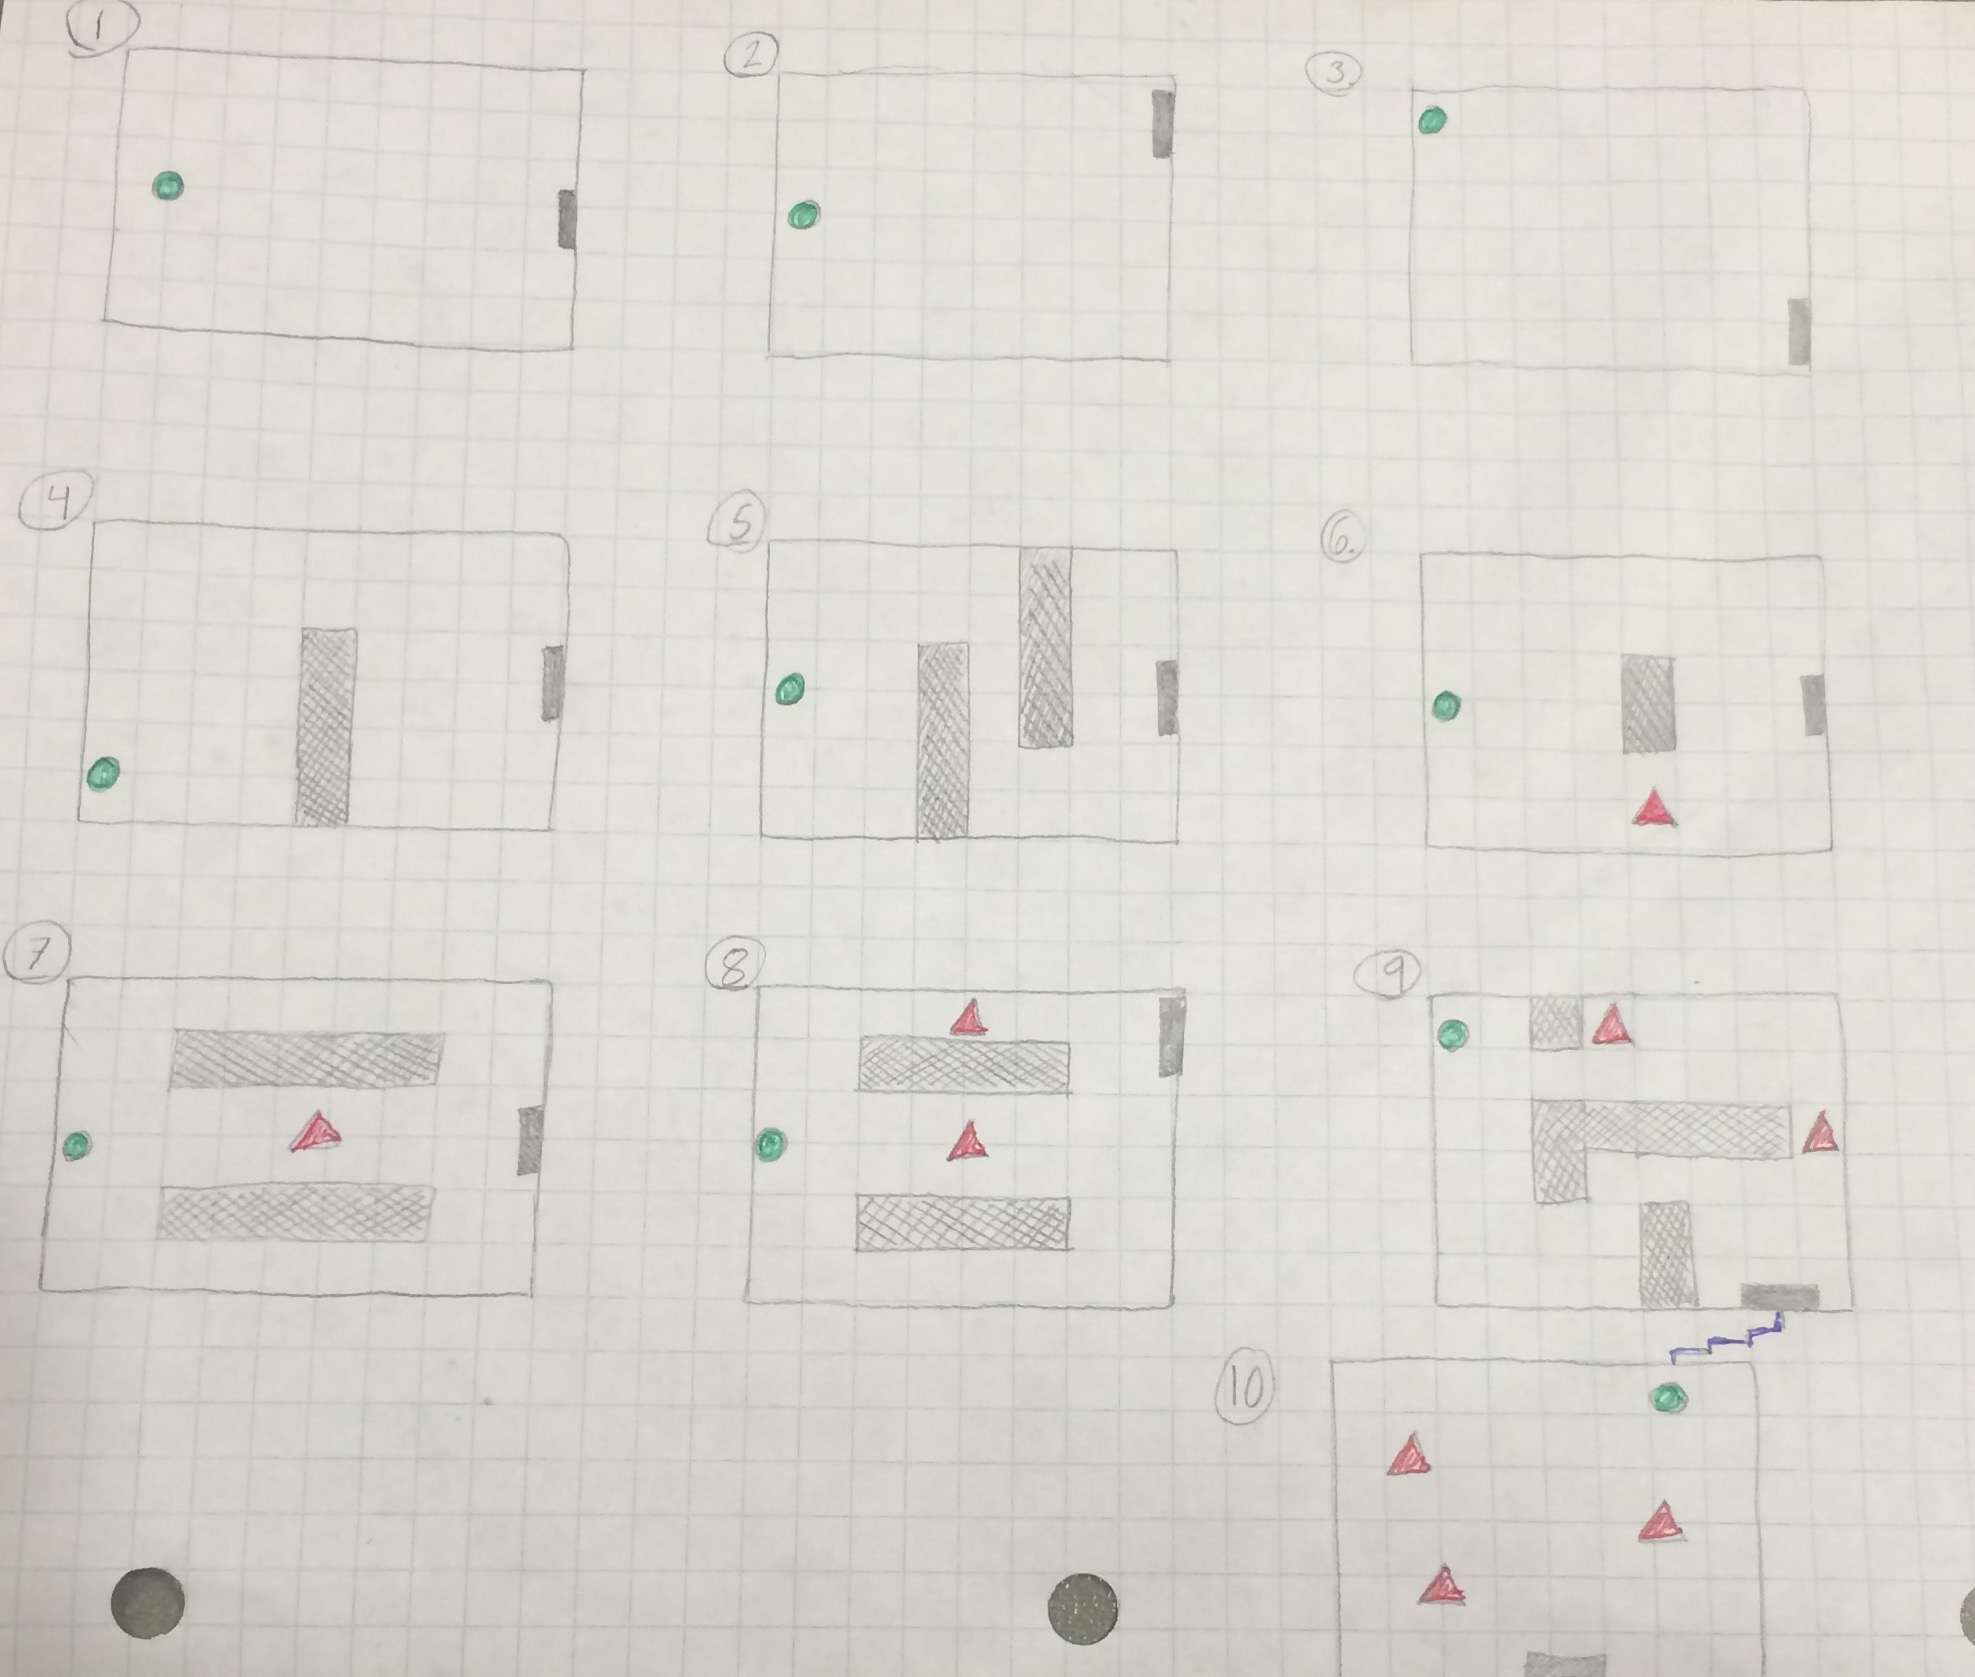 1
2
3.
4
5
6.
7
8
9
10